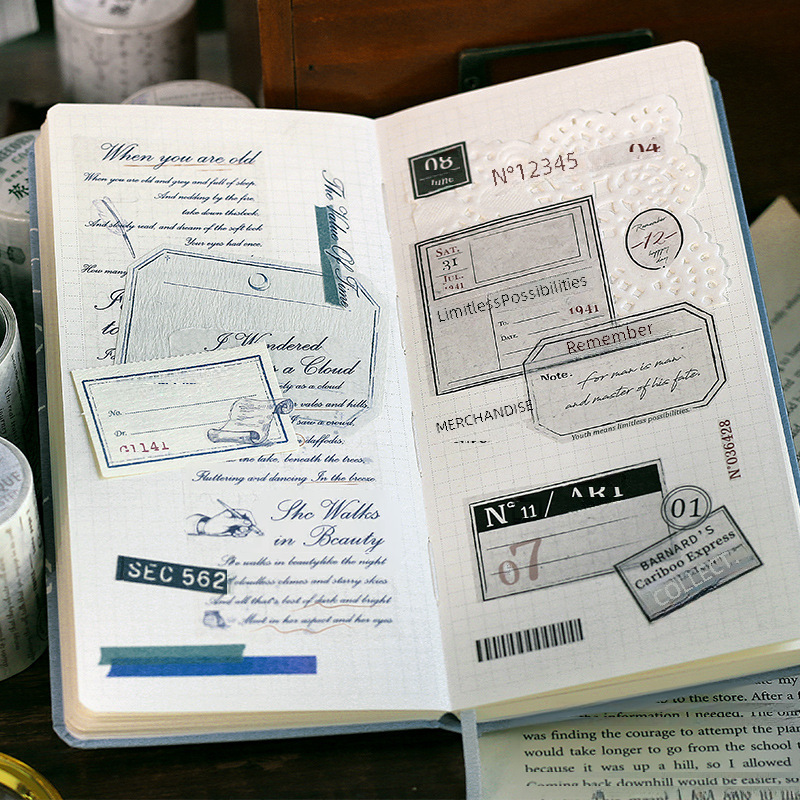 When you are old
When you are old and grey and full of sleep,
And nodding by the fire,
take down thisbook.
And slowly read, and dream of the soft look
Your eyes had once,
How many
I Wandered
s a Cloud
ely as a cloud
r vales and hills,
I saw a crowd,
daffodils;
the lake, beneath the trees,
Fluttering and dancing In the breeze
No.
Dr.
G1141
She Walks
in Beauty
She walks in beautylike the night
cloudless climes and starry skies
And all that's best of dark and bright
Meet in her aspect and her eyes
SEC 562
08
N°12345
04
Remember
-12-
SAT.
31
JUL.
1941
LimitlessPossibilities
To.
1941
Date.
Remember
Note.
For man is man
and master of his fate.
Youth means limitless possibilities.
MERCHANDISE
N°036428
N° 11 / ART
07
01
BARNARD'S
Cariboo Express
COLLECT.
to the store. After a f
the information I needed. The only
was finding the courage to attempt the plan
would take longer to go from the school t
because it was up a hill, so I allowed
Coming back downhill would be easier, so